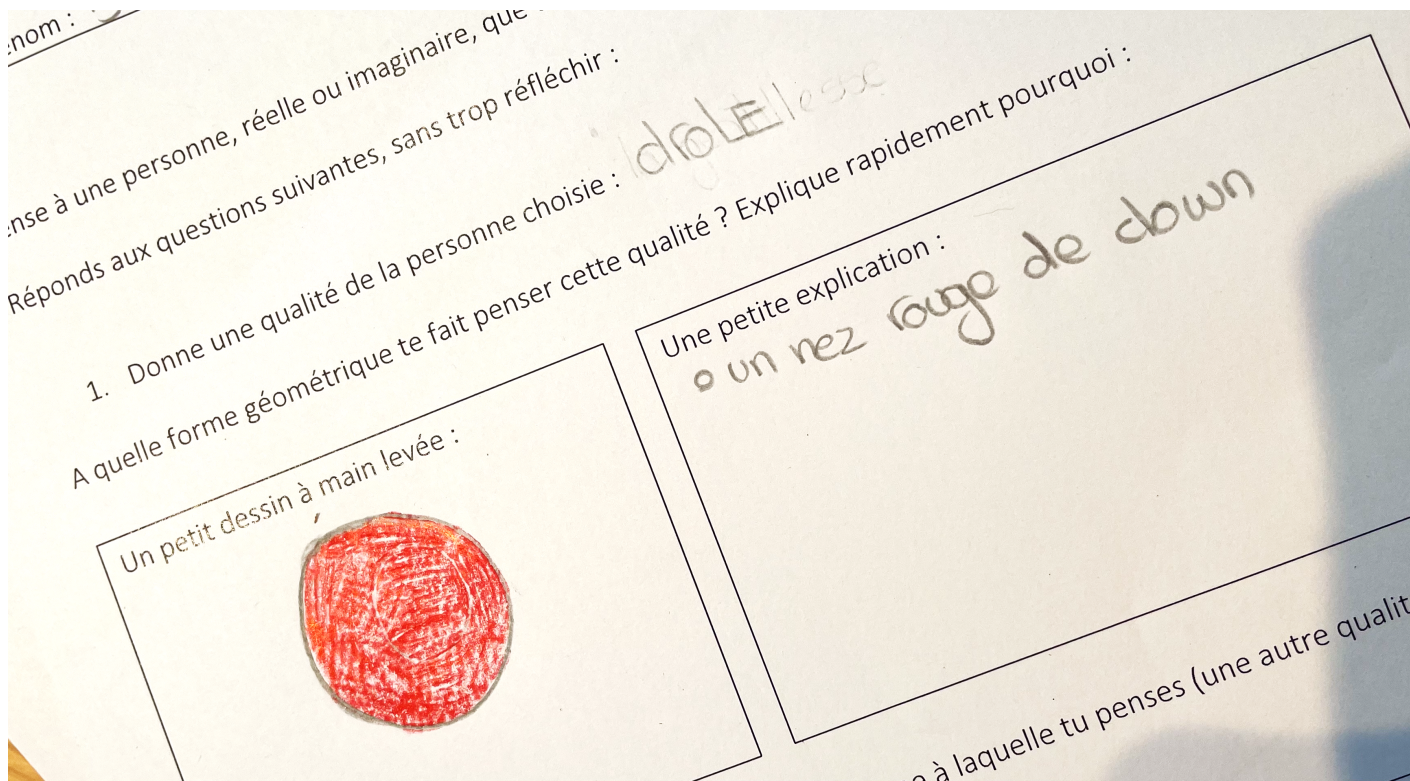 nom :
nse à une personne, réelle ou imaginaire, que
Réponds aux questions suivantes, sans trop réfléchir :
1. Donne une qualité de la personne choisie : drolE
A quelle forme géométrique te fait penser cette qualité ? Explique rapidement pourquoi :
Un petit dessin à main levée :
Une petite explication :
un nez rouge de clown
à laquelle tu penses (une autre qualit